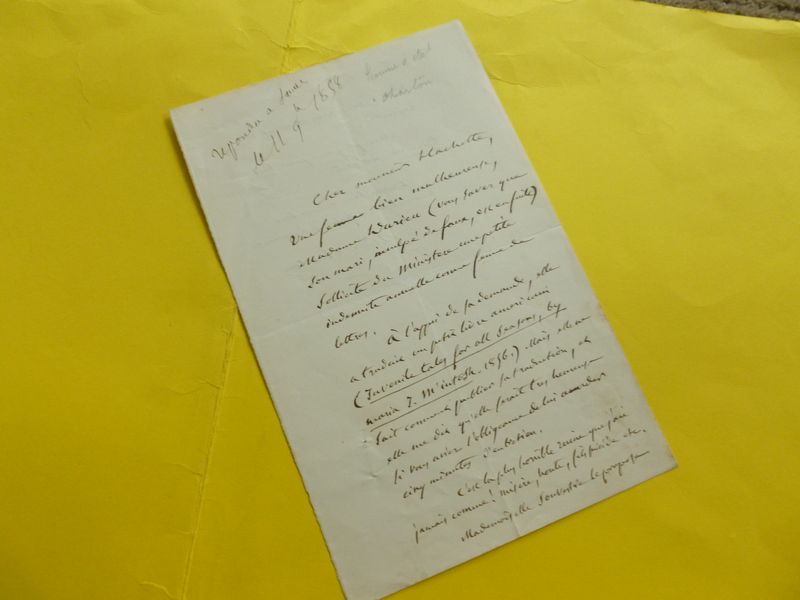 répondu
le 11 9 1858
Charton
Cher monsieur Hachette,
Une femme bien malheureuse,
Madame (vous savez que
son mari, inculpé de faux, est en fuite)
sollicite du Ministère une petite
indemnité annuelle comme femme de
lettres.
À l'appui de sa demande, elle
a traduit un petit livre américain
(Juvenile tales for all Seasons, by
maria J. M'intosh. 1856.) Mais elle ne
sait comment publier sa traduction, et
elle me dit qu'elle serait très heureuse
si vous aviez l'obligeance de lui accorder
cinq minutes d'entretien.
C'est la plus horrible ruine que j'aie
jamais connue! misère, honte, etc.
Mademoiselle Souvestre le